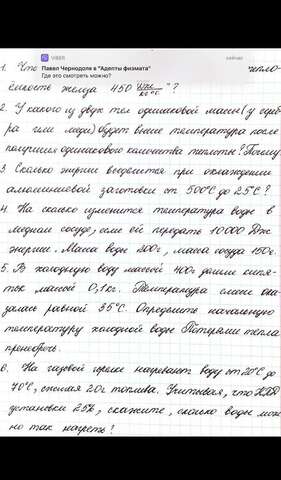 VIBER
сейчас
Павел Чернодоля в "Адепты физмата"
Где это смотреть можно?
1. Что тепло-
ёмкость железа 450 Дж/кг°С "?
2. У какого из двух тел одинаковой массы (у сереб-
ра или меди) будет выше температура после
получения одинакового количества теплоты? Почему?
3. Сколько энергии выделится при охлаждении
алюминиевой заготовки от 500°С до 25°С?
4. На сколько изменится температура воды в
медном сосуде, если ей передать 10 000 Дж
энергии. Масса воды 200г, масса сосуда 150г.
5. В холодную воду массой 400г долили кипя-
ток массой 0,1кг. Температура смеси ока-
залась равной 35°С. Определите начальную
температуру холодной воды. Потерями тепла
пренебречь.
6. На газовой горелке нагревают воду от 20°С до
70°С, спалив 20г топлива. Учитывая, что КПД
установки 25%, скажите, сколько воды мож
но так нагреть!